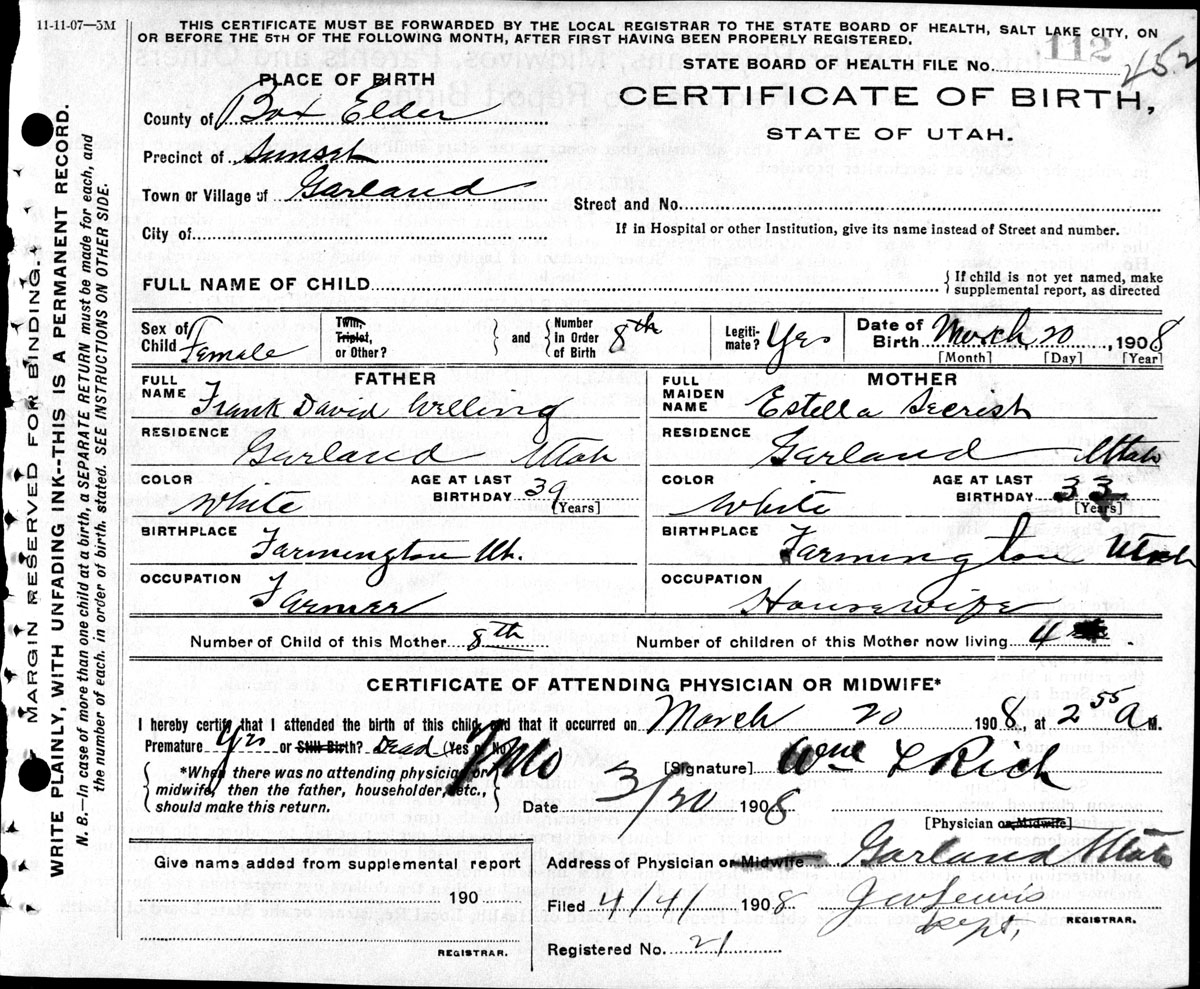 11-11-07—5M
THIS CERTIFICATE MUST BE FORWARDED BY THE LOCAL REGISTRAR TO THE STATE BOARD OF HEALTH, SALT LAKE CITY, ON
OR BEFORE THE 5TH OF THE FOLLOWING MONTH, AFTER FIRST HAVING BEEN PROPERLY REGISTERED.
112
STATE BOARD OF HEALTH FILE No. 252
PLACE OF BIRTH
CERTIFICATE OF BIRTH,
STATE OF UTAH.
County of Box Elder
Precinct of Sunset
Town or Village of Garland
Street and No.
City of
If in Hospital or other Institution, give its name instead of Street and number.
FULL NAME OF CHILD
{ If child is not yet named, make
supplemental report, as directed
Sex of Child Female
Twin, Triplet, or Other?
and
Number In Order of Birth 8th
Legiti-mate? Yes
Date of Birth March, 20, 1908
[Month] [Day] [Year]
FATHER
FULL NAME Frank David Welling
RESIDENCE Garland Utah
COLOR White AGE AT LAST BIRTHDAY 39 [Years]
BIRTHPLACE Farmington Ut.
OCCUPATION Farmer
MOTHER
FULL MAIDEN NAME Estella Secrist
RESIDENCE Garland Utah
COLOR White AGE AT LAST BIRTHDAY 33 [Years]
BIRTHPLACE Farmington Utah
OCCUPATION Housewife
Number of Child of this Mother 8th Number of children of this Mother now living 4
CERTIFICATE OF ATTENDING PHYSICIAN OR MIDWIFE*
I hereby certify that I attended the birth of this child, and that it occurred on March 20 1908, at 2 55 A M.
Premature Yes or Still Birth? Dead (Yes or No) No
*When there was no attending physician or
midwife, then the father, householder, etc.,
should make this return.
[Signature] Wm L Rich
Date 3/20 1908
[Physician or Midwife]
Give name added from supplemental report
190
REGISTRAR.
Address of Physician or Midwife Garland Utah
Filed 4/4/ 1908 J W Lewis
Dept, REGISTRAR.
Registered No. 21
MARGIN RESERVED FOR BINDING.
WRITE PLAINLY, WITH UNFADING INK--THIS IS A PERMANENT RECORD.
N. B.—In case of more than one child at a birth, a SEPARATE RETURN must be made for each, and
the number of each, in order of birth, stated. SEE INSTRUCTIONS ON OTHER SIDE.